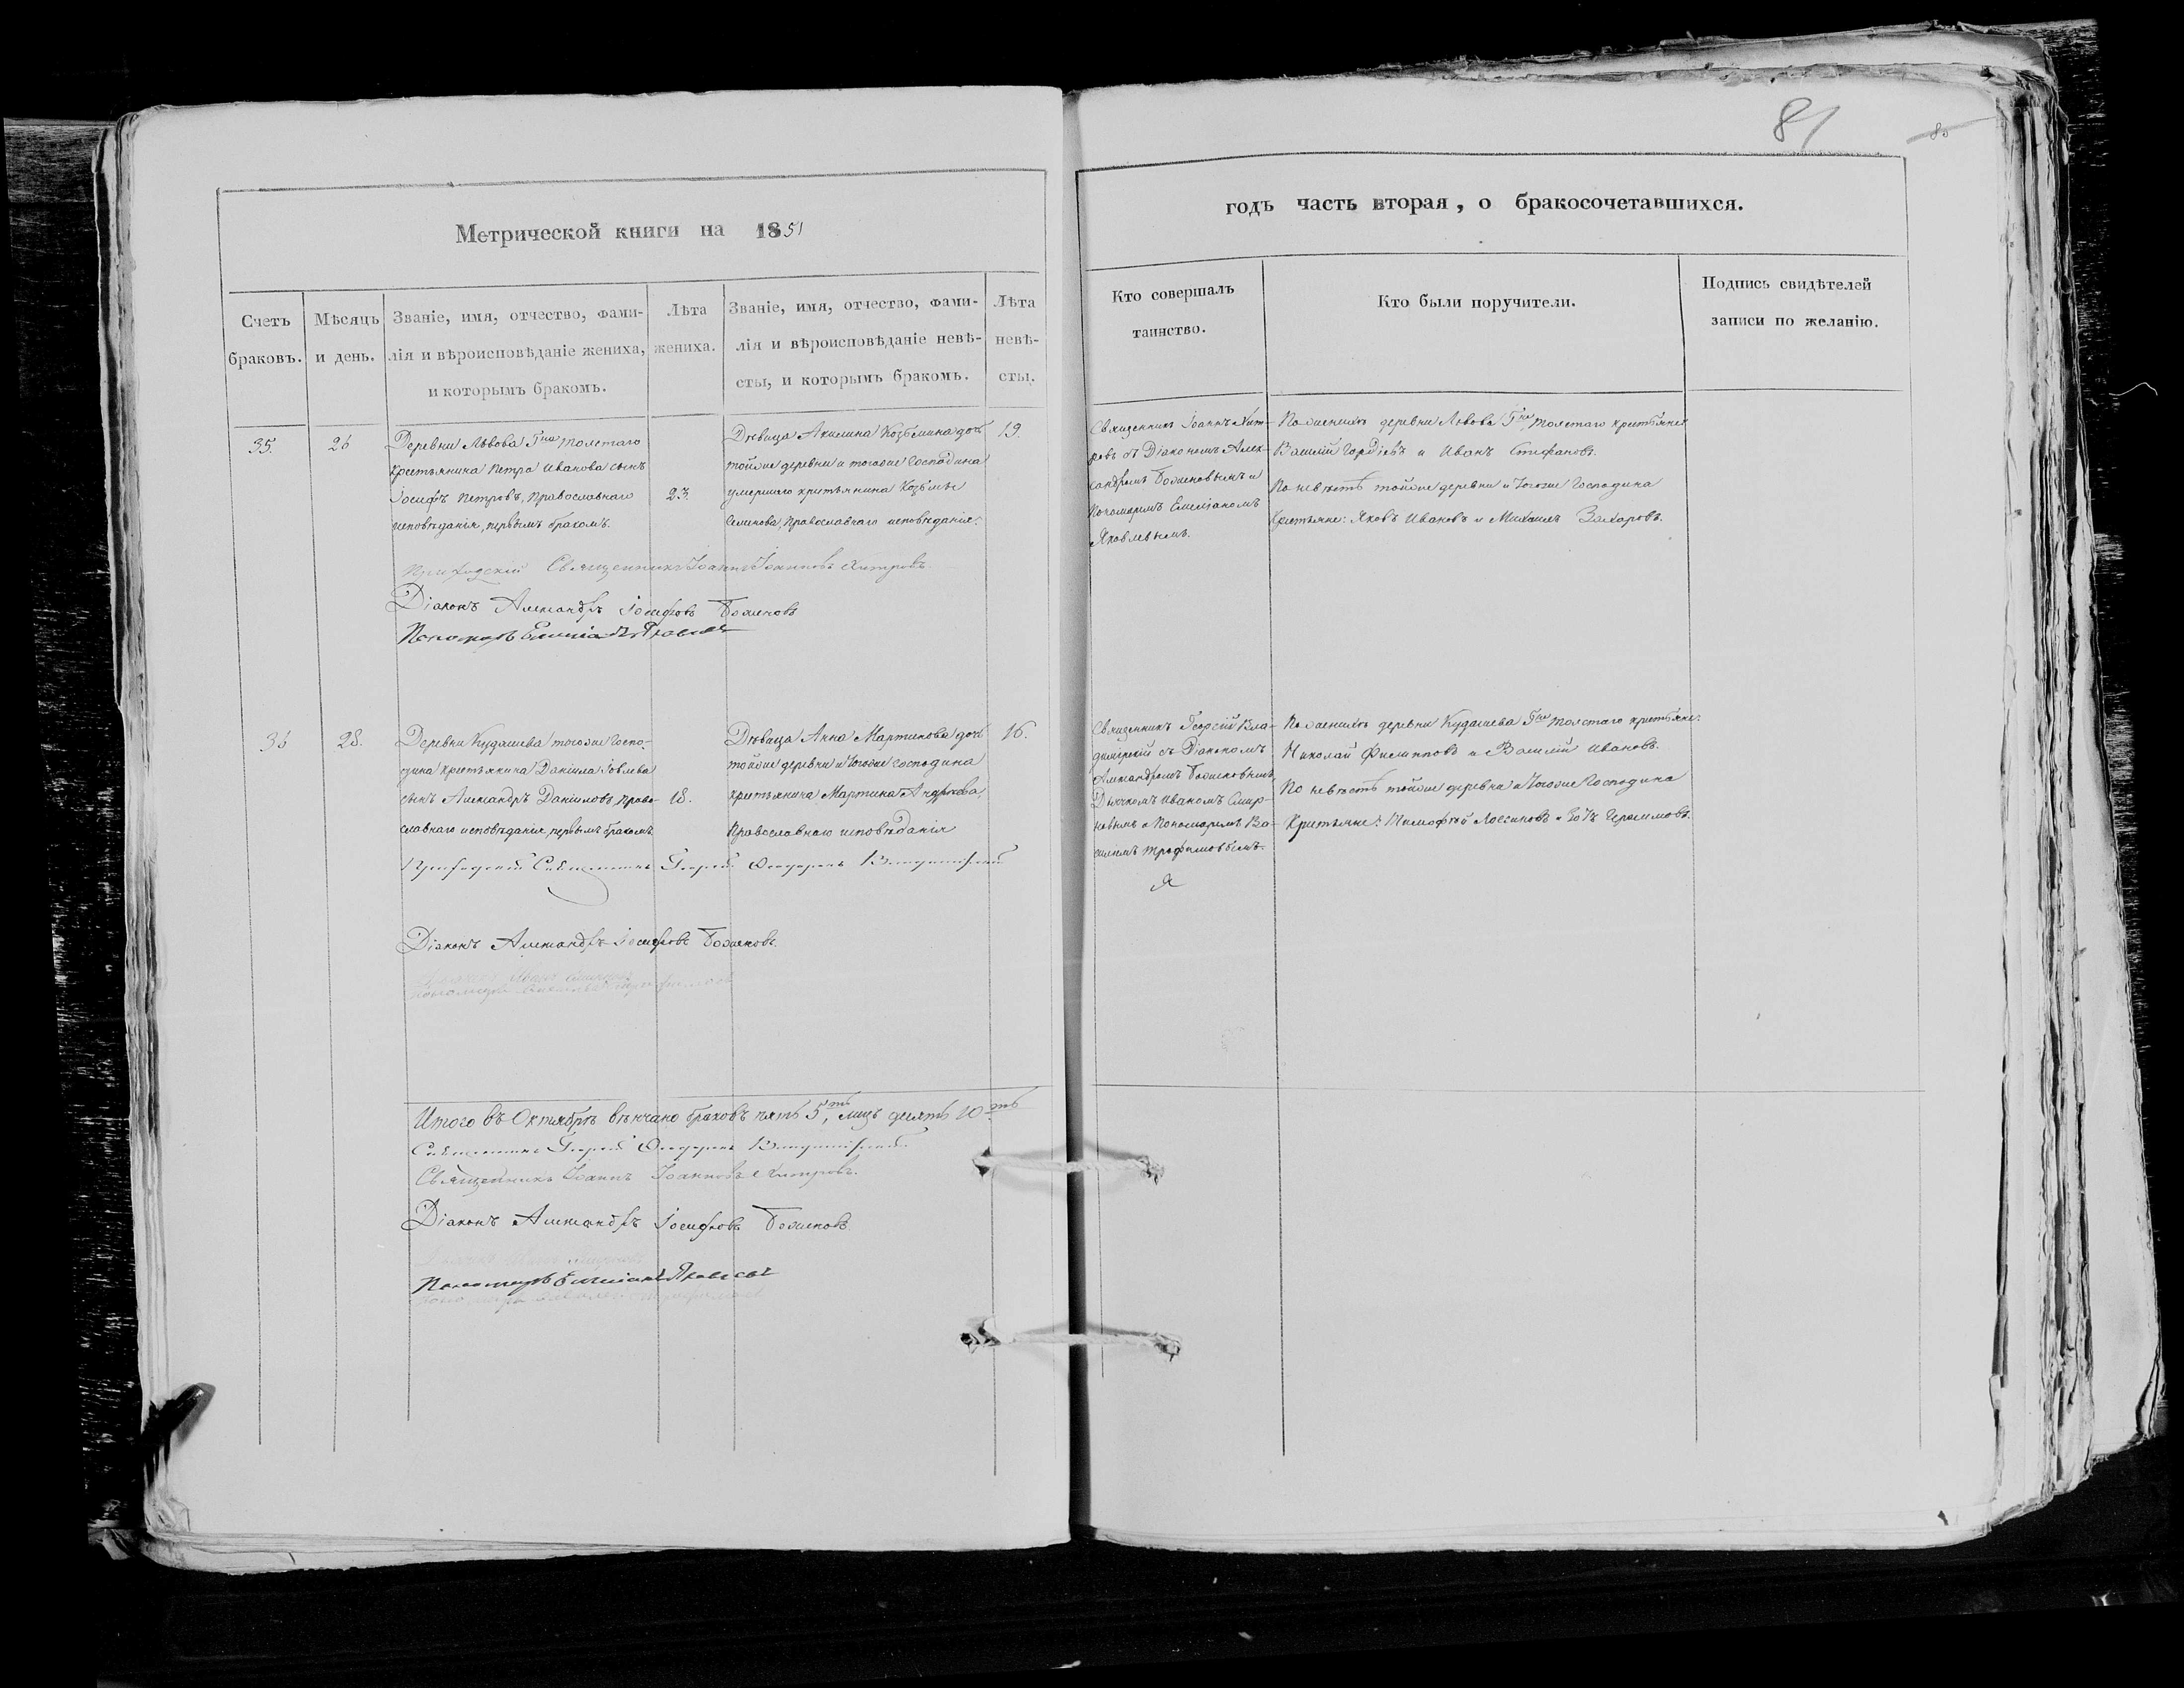 81
85
Метрической книги на 1851
годъ часть вторая, о бракосочетавшихся.
Счетъ
браковъ.
Мѣсяцъ
и день.
Званіе, имя, отчество, фами-
лія и вѣроисповѣданіе жениха,
и которымъ бракомъ.
Лѣта
жениха.
Званіе, имя, отчество, фами-
лія и вѣроисповѣданіе невѣ-
сты, и которымъ бракомъ.
Лѣта
невѣ-
сты.
Кто совершалъ
таинство.
Кто были поручители.
Подпись свидѣтелей
записи по желанію.
35.
26
Деревни Львова Гна Толстаго
Крестьянина Петра Иванова сынъ
Іосифъ Петровъ, Православнаго
исповѣданія, первымъ бракомъ.
23.
Дѣвица Акилина Козьмина дочь
тойже деревни и тогоже Господина
умершаго крестьянина Козьмы
Семенова, Православнаго исповѣданія.
19.
Священникъ Іоаннъ Хит-
ровъ съ Діакономъ Алек-
сандромъ Боженовымъ и
Пономаремъ Емеліаномъ
Яковлевымъ.
По женихѣ деревни Львова Гна Толстаго крестьяне
Василій Гордѣевъ и Иванъ Стефановъ.
По невѣстѣ тойже деревни и тогоже Господина
Крестьяне: Яковъ Ивановъ и Михаилъ Захаровъ.
Приходскій Священникъ Іоаннъ Іоанновъ Хитровъ.
Діаконъ Александръ Іосифовъ Боженовъ
Пономарь Емиліанъ Яковлевъ
36
28.
Деревни Кудашева тогоже Госпо-
дина крестьянина Даніила Іовлева
сынъ Александръ Даніиловъ, право-
славнаго исповѣданія, первымъ бракомъ
18.
Дѣвица Анна Мартинова дочь
тойже деревни и тогоже господина
крестьянина Мартина Андреева,
Православнаго исповѣданія
16.
Священникъ Георгій Вла-
димірскій съ Діакономъ
Александромъ Боженовымъ,
Дьячкомъ Иваномъ Смир-
новымъ и Пономаремъ Ва-
силіемъ Трофимовымъ.
По женихѣ деревни Кудашева Гна Толстаго крестьяне:
Николай Филипповъ и Василій Ивановъ.
По невѣстѣ тойже деревни и тогоже Господина
Крестьяне: Тимофей и Герасимовъ.
Приходскій Священникъ Георгій Ѳеодоровъ Владимірскій
Діаконъ Александръ Іосифовъ Боженовъ.
Дьячекъ Иванъ Смирновъ
Пономарь Василій Трофимовъ
Итого въ Октябрѣ вѣнчано браковъ пять 5ть, лицъ десять 10ть
Священникъ Георгій Ѳеодоровъ Владимірскій
Священникъ Іоаннъ Іоанновъ Хитровъ.
Діаконъ Александръ Іосифовъ Боженовъ
Дьячекъ Иванъ Смирновъ
Пономарь Емиліанъ Яковлевъ
Пономарь Василій Трофимовъ